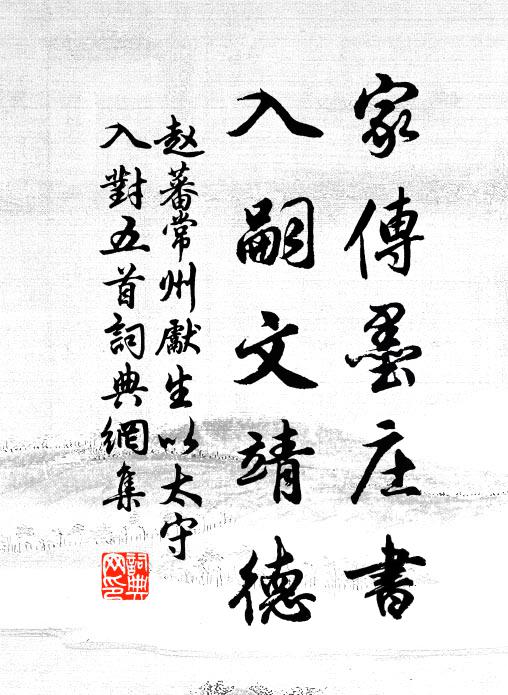 家傳墨庄書
入嗣文靖德
赵蕃常州獻生以太守
入對五首詞典網集
詞典网印